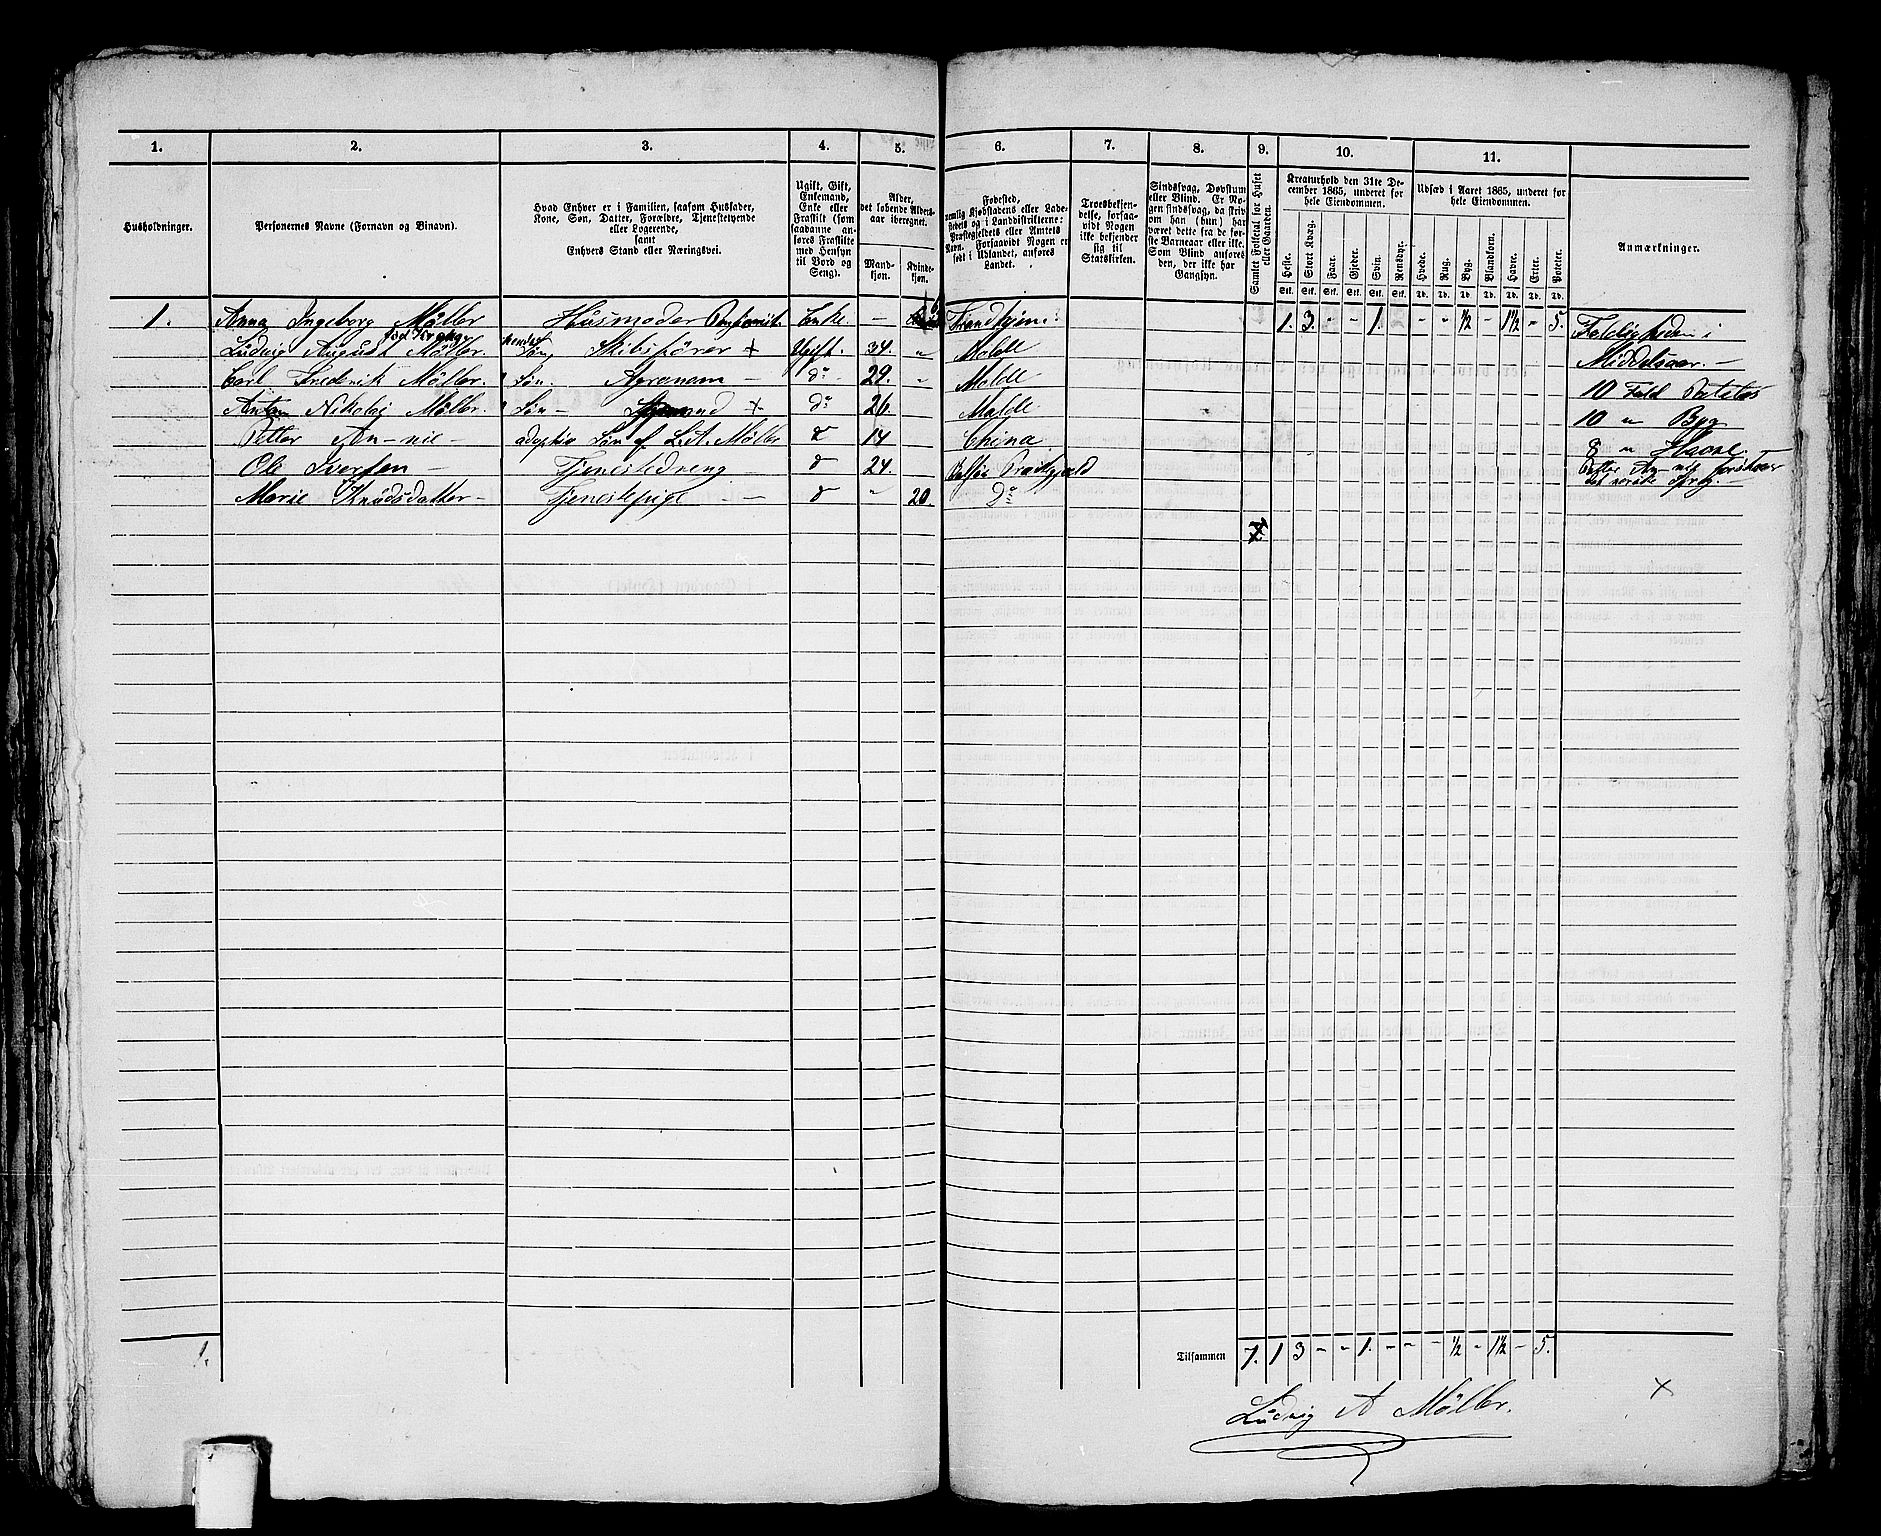 1. 2. 3. 4. 5. 6. 7. 8. 9. 10. 11.
Husholdninger.
Personernes Navne (Fornavn og Binavn).
Hvad Enhver er i Familien, saasom Husfader,
Kone, Søn, Datter, Forældre, Tjenestetyende
eller Logerende,
samt
Enhvers Stand eller Næringsvei.
Ugift, Gift,
Enkemand,
Enke eller
Fraskilt (som
saadanne an-
føres Fraskilte
med Hensyn
til Bord og
Seng).
Alder,
det løbende Alders-
aar iberegnet.
Mand-
kjøn.
Kvinde-
kjøn.
Fødested,
nemlig Kjøbstadens eller Lade-
stedets og i Landdistrikterne:
Præstegjeldets eller Amtets
Navn. Forsaavidt Nogen er
født i Udlandet, anføres
Landet.
Troesbekjen-
delse, forsaa-
vidt Nogen
ikke bekjender
sig til
Statskirken.
Sindssvag, Døvstum
eller Blind. Er No-
gen sindssvag, da skriv
om han (hun) har
været dette fra de før-
ste Barneaar eller ikke.
Som Blind anføres
den, der ikke har
Gangsyn.
Samlet Folketal for Huset
eller Gaarden.
Kreaturhold den 31te De-
cember 1865, underet for
hele Eiendommen.
Heste. Stort Kvæg. Faar. Gjeder. Svin. Rensdyr.
Stk. Stk. Stk. Stk. Stk. Stk.
Udsæd i Aaret 1865, underet for
hele Eiendommen.
Hvede. Rug. Byg. Blandkorn. Havre. Erter. Poteter.
Td. Td. Td. Td. Td. Td. Td.
Anmærkninger.
1. Anna Ingeborg Möller Husmoder Enke. – Trondhjem. 1. 3. – – 1. – – – ½ – 1½ – 5.
fød
Ludvig August Möller. hendes Søn, Skibsfører + Ugift. 34. " Molde
Carl Frederik Möller. " Søn. Agronom – do 29. " Molde
Anton Nikolaj Möller. " Søn – + do 26. Molde
Petter An-nie – adoptiv Søn af L. A. Möller d 14 China
Ole Iversen – Tjenestedreng – d 24.
Marie Knudsdatter – Tjenestepige – – d " 20. do
7
Foldigheden i
Middelsaar. –
10 Fold Poteter
10 " Byg
8 " Havre.
Petter An-nie forstaar
det norske Sprog. –
1.
Tilsammen 7. 1 3 – – 1. – – – ½ – 1½ – 5.
Ludvig A Möller.
x